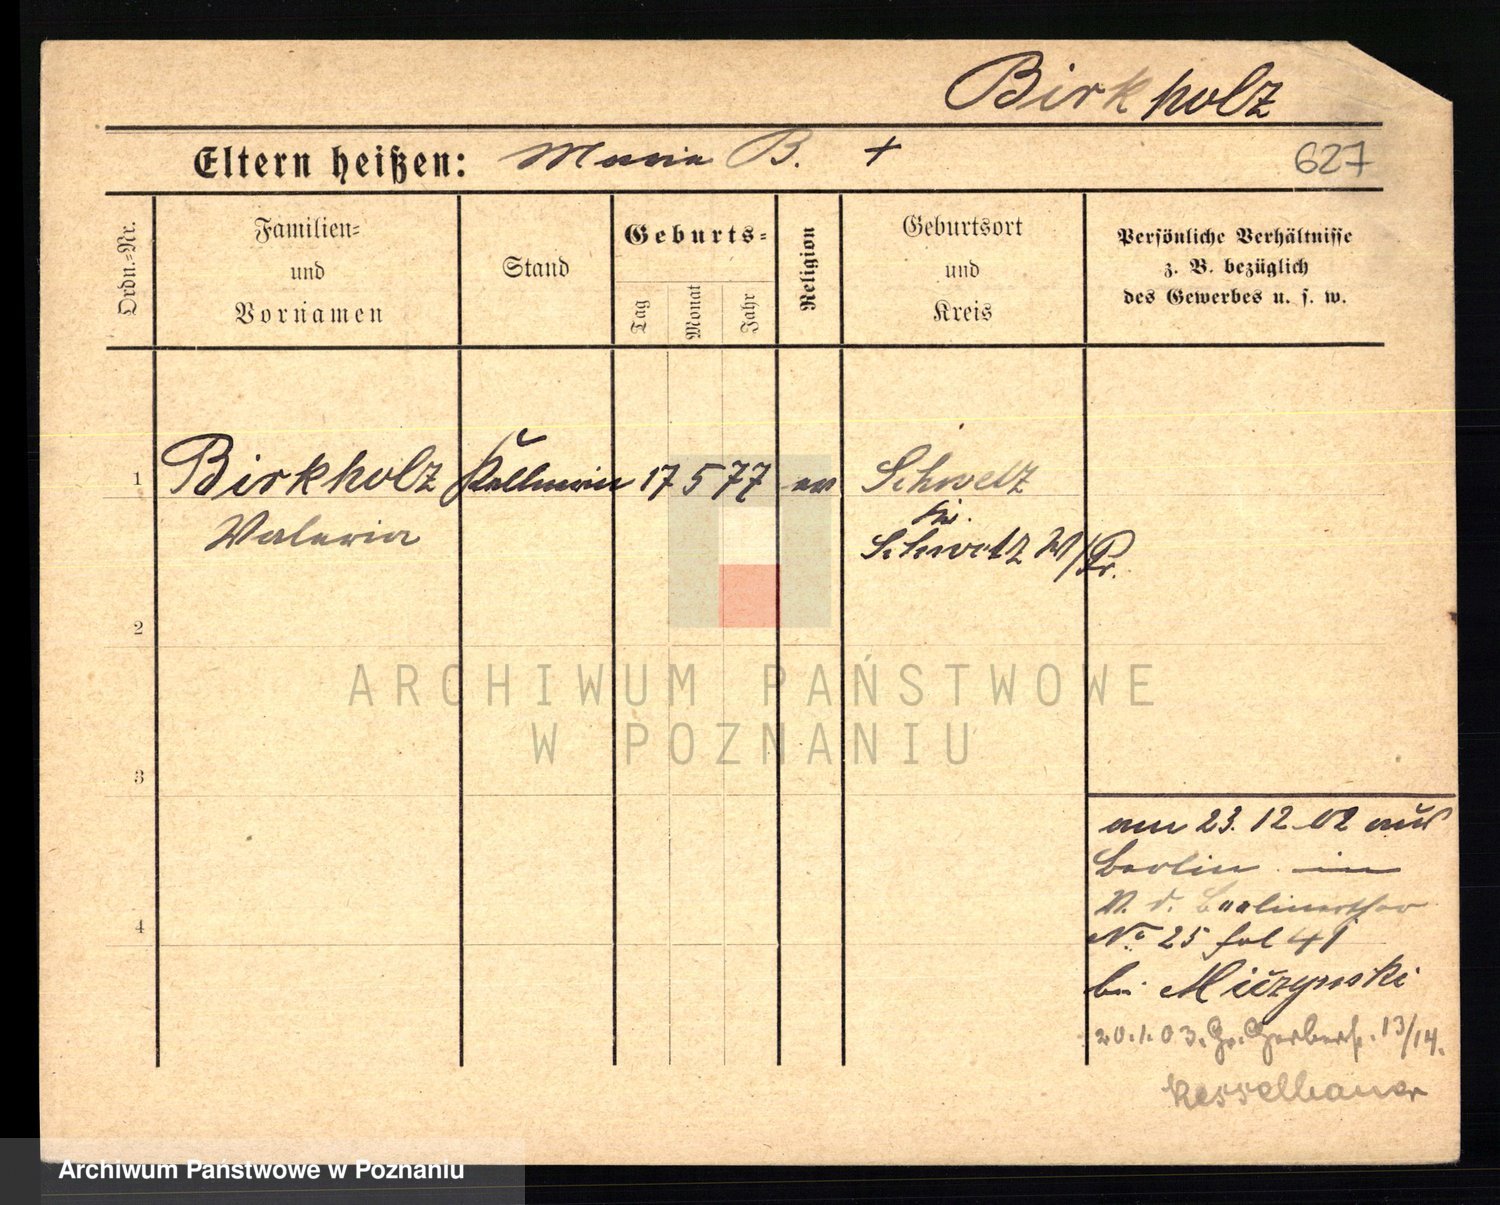 Birkholz
Eltern heißen: Maria B. +
627
Ordn.-Nr.
Familien-
und
Vornamen
Stand
Geburts-
Tag
Monat
Jahr
Religion
Geburtsort
und
Kreis
Persönliche Verhältnisse
z. B. bezüglich
des Gewerbes u. s. w.
1 Birkholz Kellnerin 17 5 77 ev Schwetz
Valeria
Kr.
Schwetz W/Pr.
2
3
4
ARCHIWUM PAŃSTWOWE
W POZNANIU
am 23.12.02 aus
Berlin in
V. d. Berlinerthor
No 25 fol 41
bei Miczynski
20.1.03. Gr. Gerberst. 13/14.
Kesselhauer
Archiwum Państwowe w Poznaniu